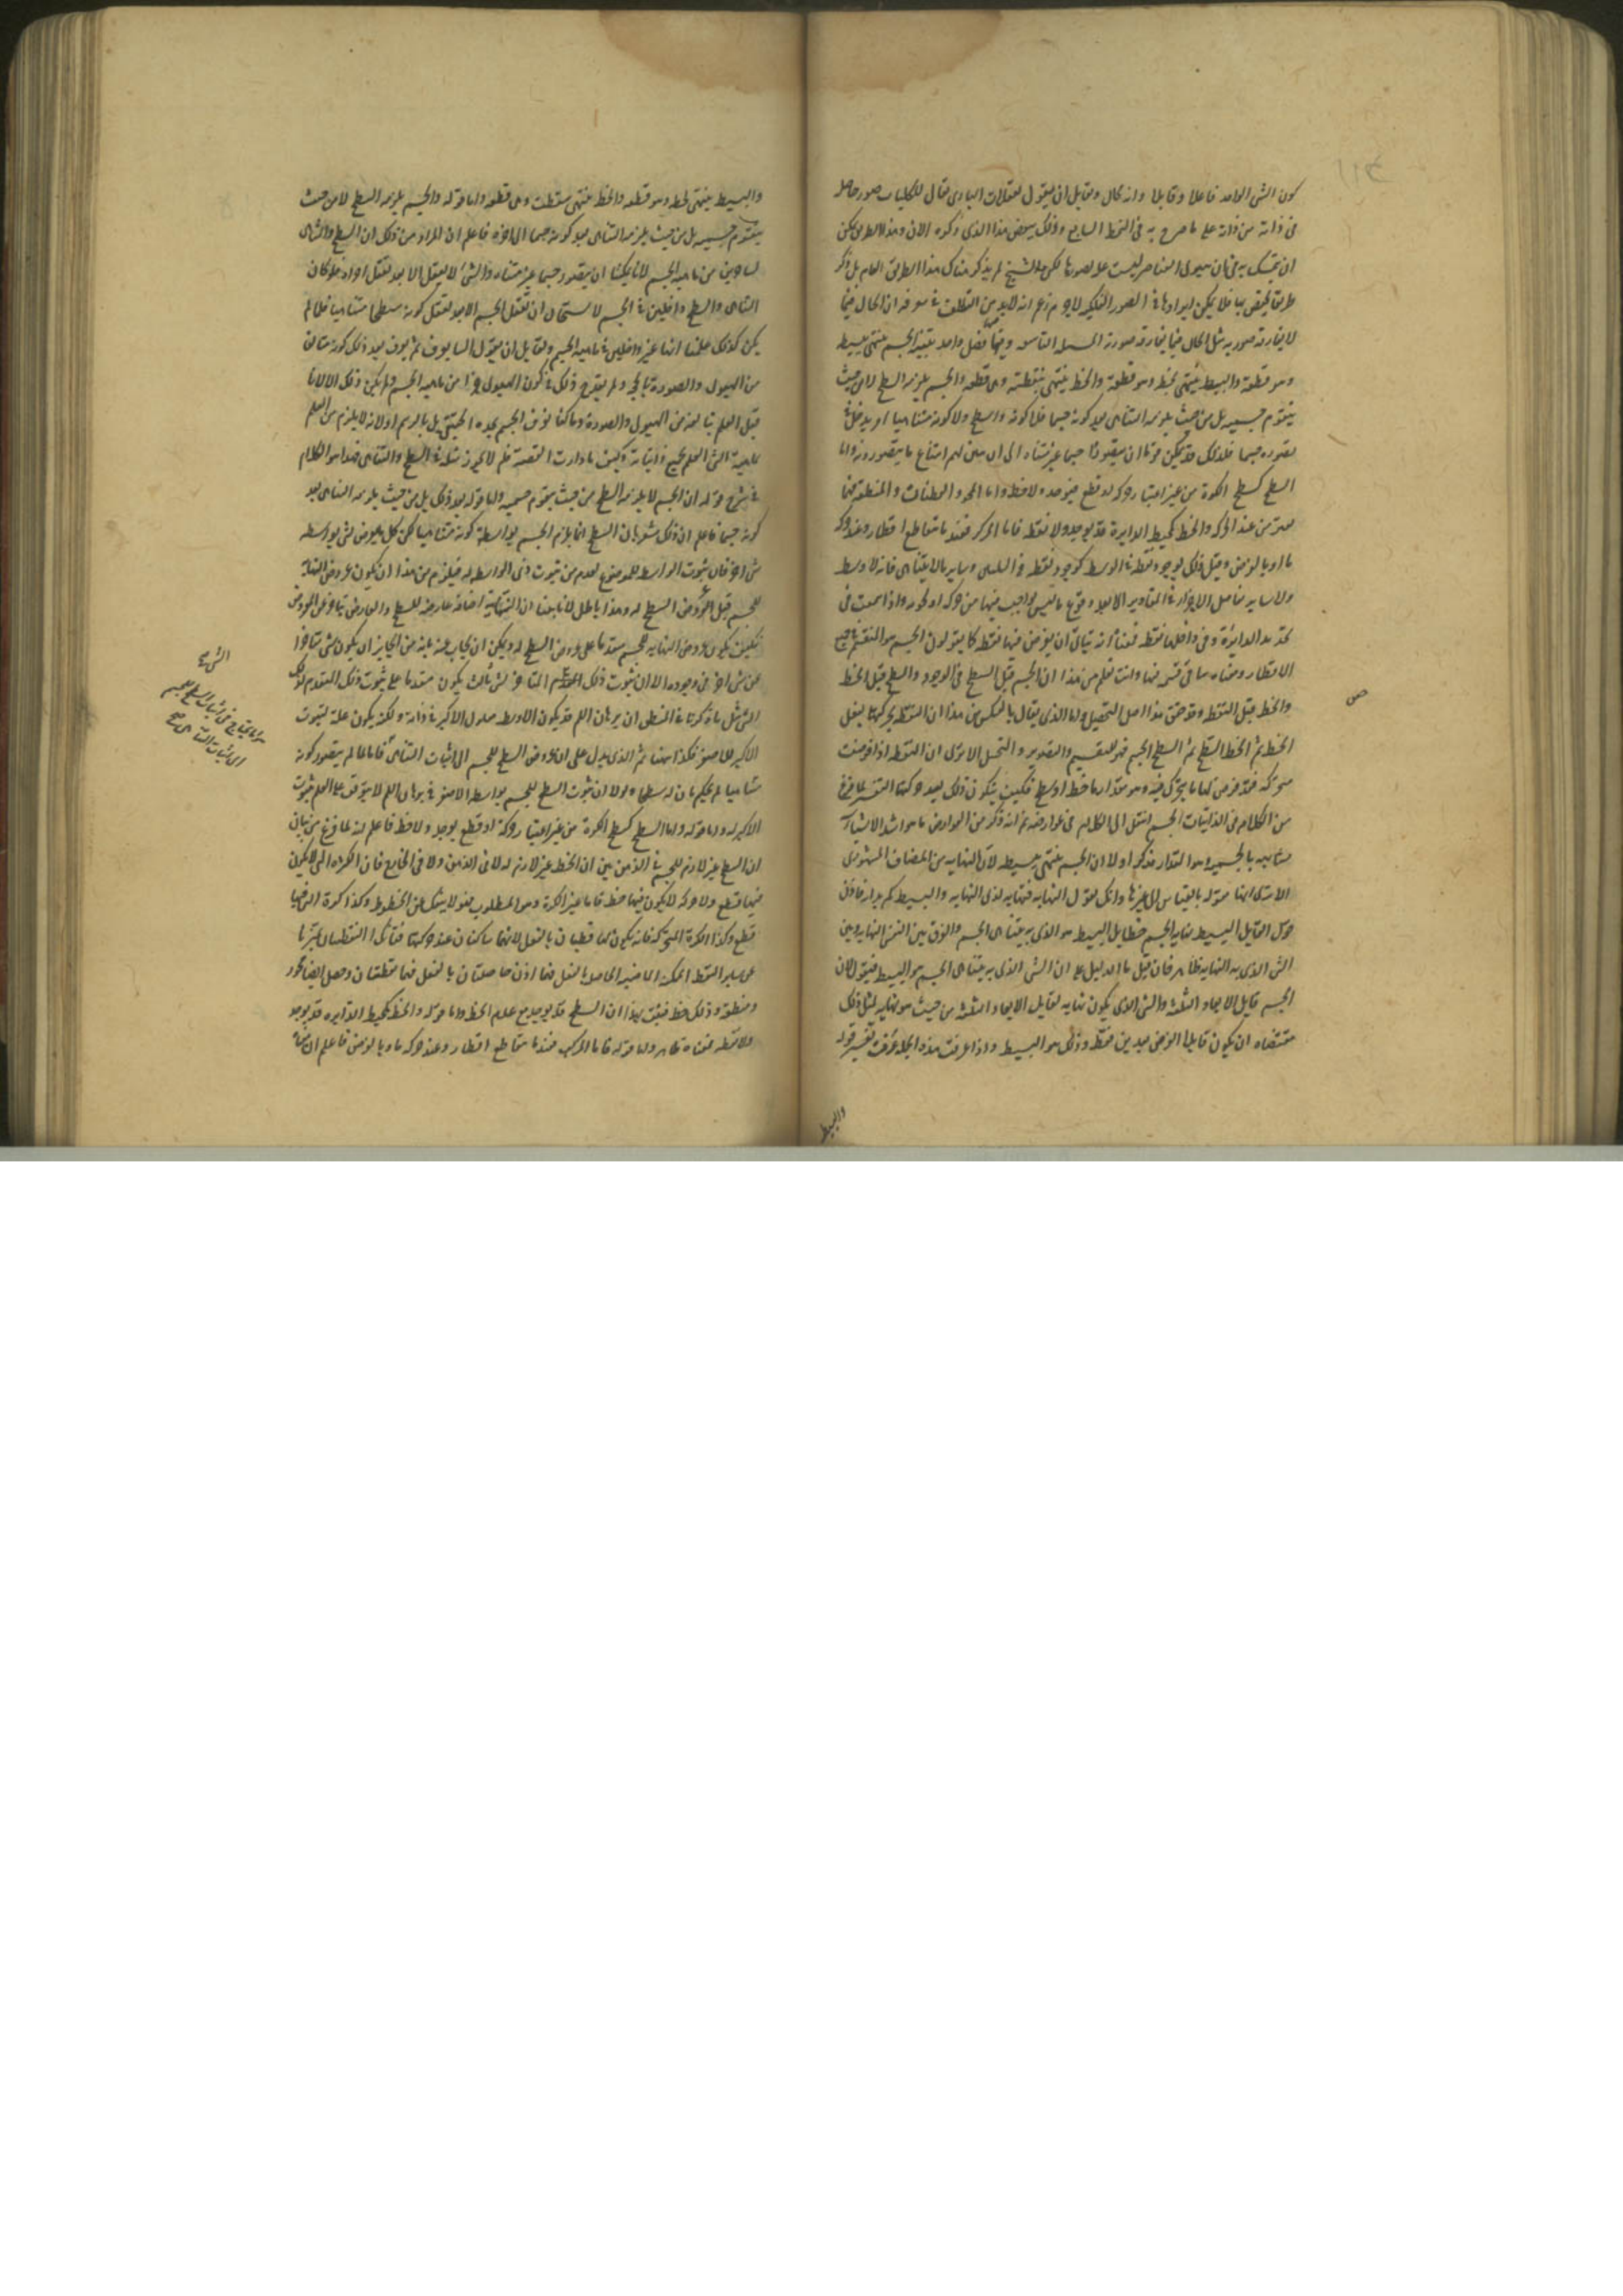 كون الشئ الواحد فاعلا وقابلا وانه محال ولقايل ان يقول تعقلات البارى تعالى للكليات صور حاصلة
فى ذاته من ذاته على ما صرح به فى النمط السابع وذلك ينقض هذا الذى ذكره الان وهذا الطريق يمكن
ان يتمسك به فى ان هيولى العناصر ليست علة لصورها لكن الشيخ لم يذكر هناك هذا الطريق العام بل ذكر
طريقا يختص بها فلا يمكن ايرادها فى الصور الفلكية لاجرم زعم انه لابد من التلطف فى معرفة ان الحال فيما
لا يفارقه صورته مثل الحال فيما يفارقه صورته المسئلة التاسعة وفيها فصل واحد تنبيه الجسم ينتهى ببسيطه
وهو قطعه والبسيط ينتهى بخطه وهو قطعه والخط ينتهى بنقطته وهى قطعه والجسم يلزمه السطح لا من حيث
يتقوم جسميته بل من حيث يلزمه التناهى بعد كونه جسما فلا كونه ذا سطح ولا كونه متناهيا امر يدخل فى
تصوره جسما فلذلك قد يمكن قوما ان يتصوروا جسما غير متناه الى ان يتبين لهم امتناع ما يتصورونه واما
السطح كسطح الكرة من غير اعتبار حركة او قطع فيوجد ولا خط واما المحور والقطبان والمنطقة فمما
يعرض عند الحركة والخط كمحيط الدايرة قد يوجد ولا نقطة فاما المركز فعندما تتقاطع اقطار وعند حركة
ما او بالفرض وقبل ذلك فوجود نقطة فى الوسط كوجود نقطة فى الثلثين وساير ما لا يتناهى فانه لا وسط
ولا ساير مفاصل الاجزاء فى المقادير الا بعد وقوع ما ليس بواجب فيها من حركة او تجزية واذا سمعت فى
تحديد الدايرة وفى داخلها نقطة فمعناه انه يتاتى ان يفرض فيها نقطة كما يقولون الجسم هو المنقسم فى جميع
الاقطار ومعناه ما تاتى قسمه فيها وانت تعلم من هذا ان الجسم قبل السطح فى الوجود والسطح قبل الخط
والخط قبل النقطة وقد حقق هذا اهل التحصيل واما الذى يقال بالعكس من هذا ان النقطة بحركتها تفعل
الخط ثم الخط السطح ثم السطح الجسم فهو للتفهيم والتصوير والتخييل الا ترى ان النقطة اذا فرضت
متحركة فقد فرض لها ما يتحرك فيه وهو مقدار ما خط او سطح فكيف يكون ذلك بعد حركتها التفسير لما فرغ
من الكلام فى الذاتيات الجسم انتقل الى الكلام فى عوارضه ثم انه ذكر من العوارض ما هو اشد الاشياء
مشابهة بالجسمية وهو المقدار فذكر اولا ان الجسم ينتهى ببسيطه لان النهاية من المضاف المشهورى
الا ترى انها مقولة بالقياس الى غيرها وانك تقول النهاية نهاية لذى النهاية والبسيط كم بذاته فاذن
قول القايل البسيط نهاية الجسم خطا بل البسيط هو الذى به يتناهى الجسم والفرق بين النفس النهاية وبين
الشئ الذى به النهاية ظاهر فان قيل ما الدليل على ان الشئ الذى به يتناهى الجسم هو البسيط فيقول لان
الجسم قابل الابعاد الثلثة والشئ الذى يكون نهاية لقابل الابعاد الثلثة من حيث هو نهاية لمثل ذلك
مقتضاه ان يكون قابلا لفرض بعدين فقط وذلك هو البسيط واذا عرفت هذه الجملة عرفت تفسير قوله
والبسيط
ص
والبسيط ينتهى بخطه وهو قطعه والخط ينتهى بنقطته وهى قطعه واما قوله والجسم يلزمه السطح لا من حيث
يتقوم جسميته بل من حيث يلزمه التناهى بعد كونه جسما الى اخره فاعلم ان المراد من ذلك ان السطح والتناهى
ليسا جزئين من ماهية الجسم لانا يمكننا ان يتصور جسما غير متناه والشئ لا يعقل الا بعد تعقل اجزائه فلو كان
التناهى والسطح داخلين فى الجسم لاستحال ان نعقل الجسم الا بعد تعقل كونه مسطحا متناهيا فلما لم
يكن كذلك علمنا انهما غير داخلين فى ماهية الجسم ولقايل ان يقول السنا نعرف ثم نعرف بعد ذلك كونه متالفا
من الهيولى والصورة بالحجة ولم يقدح ذلك فى كون الهيولى جزءا من ماهية الجسم ولم يكن ذلك الا لانا
قبل العلم بتالفه من الهيولى والصورة وما كنا نعرف الجسم بحده الحقيقى بل بالرسم او لانه لا يلزم من العلم
بماهية الشئ العلم بجميع ذاتياته وكيف ما دارت القصة فلم لا يجوز مثله فى السطح والتناهى فهذا هو الكلام
فى شرح قوله ان الجسم لا يلزمه السطح من حيث يتقوم جسميته واما قوله بعد ذلك بل من حيث يلزمه التناهى بعد
كونه جسما فاعلم ان ذلك مشعر بان السطح انما يلزم الجسم بواسطة كونه متناهيا لكن كل ما يعرض لشئ بواسطة
شئ اخر فان ثبوت الواسطة للموضوع اقدم من ثبوت ذى الواسطة له فيلزم من هذا ان يكون عروض النهاية
للجسم قبل عروض السطح له وهذا باطل لانا بينا ان النهاية اضافة عارضة للسطح والعارض يتاخر عن المعروض
فكيف يكون عروض النهاية للجسم متقدما على عروض السطح له ويمكن ان يجاب عنه بانه من الجايز ان يكون شئ متاخرا
عن شئ اخر فى وجوده الا ان ثبوت ذلك المتاخر لشئ ثالث يكون متقدما على ثبوت ذلك المتقدم لذلك
الشئ مثل ما ذكرنا فى المنطق ان برهان اللم قد يكون الاوسط معلول الاكبر فى ذاته ولكنه يكون علة لثبوت
الاكبر للاصغر فكذا هاهنا ثم الذى يدل على ان عروض السطح للجسم الى اثبات التناهى فانا ما لم يتصور كونه
متناهيا لم نحكم بان له سطحا ولولا ان ثبوت السطح للجسم بواسطة الاصغر فى برهان اللم لا يتوقف على العلم بثبوت
الاكبر له واما قوله واما السطح كسطح الكرة من غير اعتبار حركة او قطع يوجد ولا خط فاعلم انه لما فرغ من بيان
ان السطح غير لازم للجسم فى الذهن بين ان الخط غير لازم له لا فى الذهن ولا فى الخارج فان الكرة التى لا يكون
فيها قطع ولا حركة لا يكون فيها خط قاما غير الكرة وهو المطلوب فهو لا ينفك عن الخطوط وكذا كرة التى فيها
قطع وكذا الكرة المتحركة فانه يكون لها قطبان بالفعل لانهما ساكنان عند حركتها فتانك النقطتان تميزتا
عن ساير النقط الممكنة الحاصلة بالفعل فهما اذن حاصلتان بالفعل فهما نقطتان وحصل ايضا محور
ومنطقة وذلك خط فثبت بهذا ان السطح قد يوجد مع عدم الخط واما قوله والخط كمحيط الدايرة قد يوجد
ولا نقطة فمعناه ظاهر واما قوله فاما المركز فعندما يتقاطع اقطار وعند حركة ما وبالفرض فاعلم ان